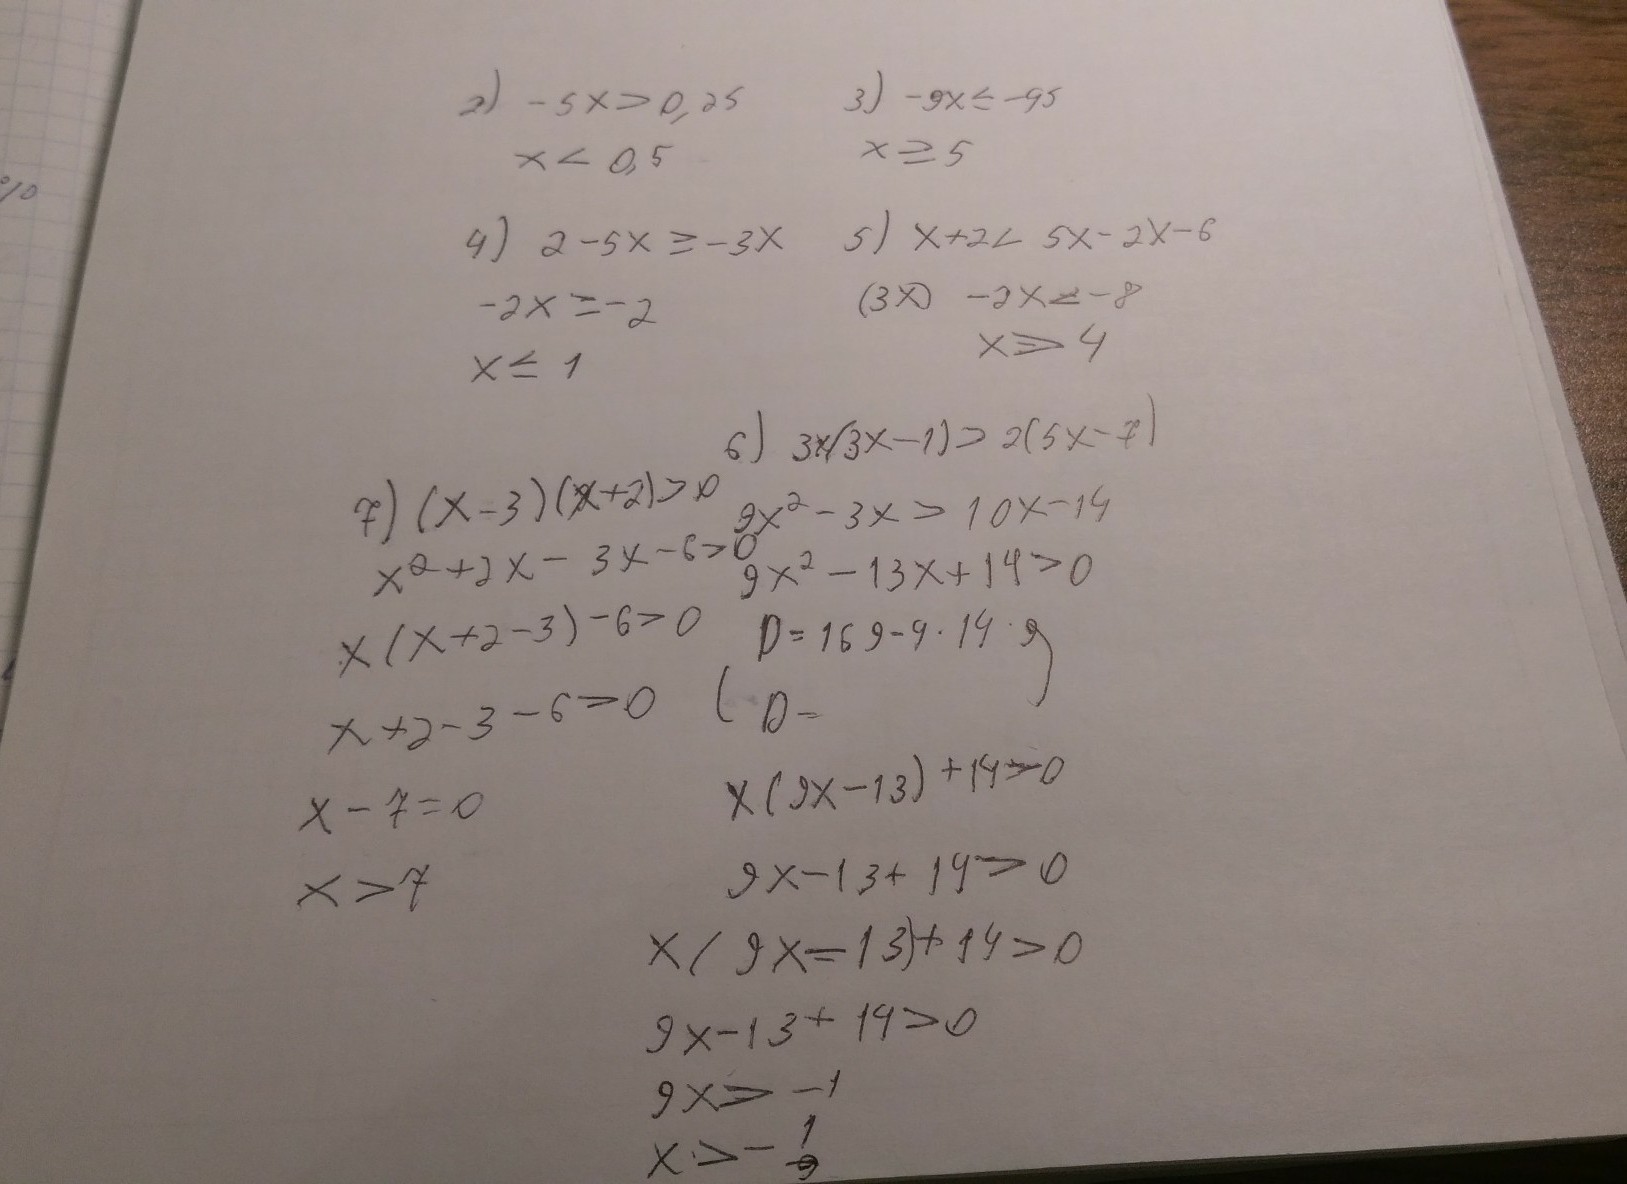 2) -5x>0,25
x< 0,5
3) -9x≤-45
x≥5
4) 2-5x≥-3x
-2x≥-2
x≤ 1
5) x+2< 5x-2x-6
(3x) -2x<-8
x⩾4
6) 3x(3x-1)>2(5x-7)
9x²-3x>10x-14
9x²-13x+14>0
D=169-4·14·9
(D=
x(9x-13)+14>0
9x-13+14>0
x(9x=13)+14>0
9x-13+14>0
9x>-1
x>-1/9
7) (x-3)(x+2)>0
x²+2x-3x-6>0
x(x+2-3)-6>0
x+2-3-6>0
x-7=0
x>7